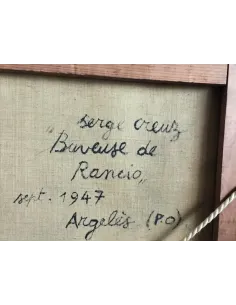 „ serge creuz
Buveuse de
Rancio„
sept. 1947
Argelès (P.O)